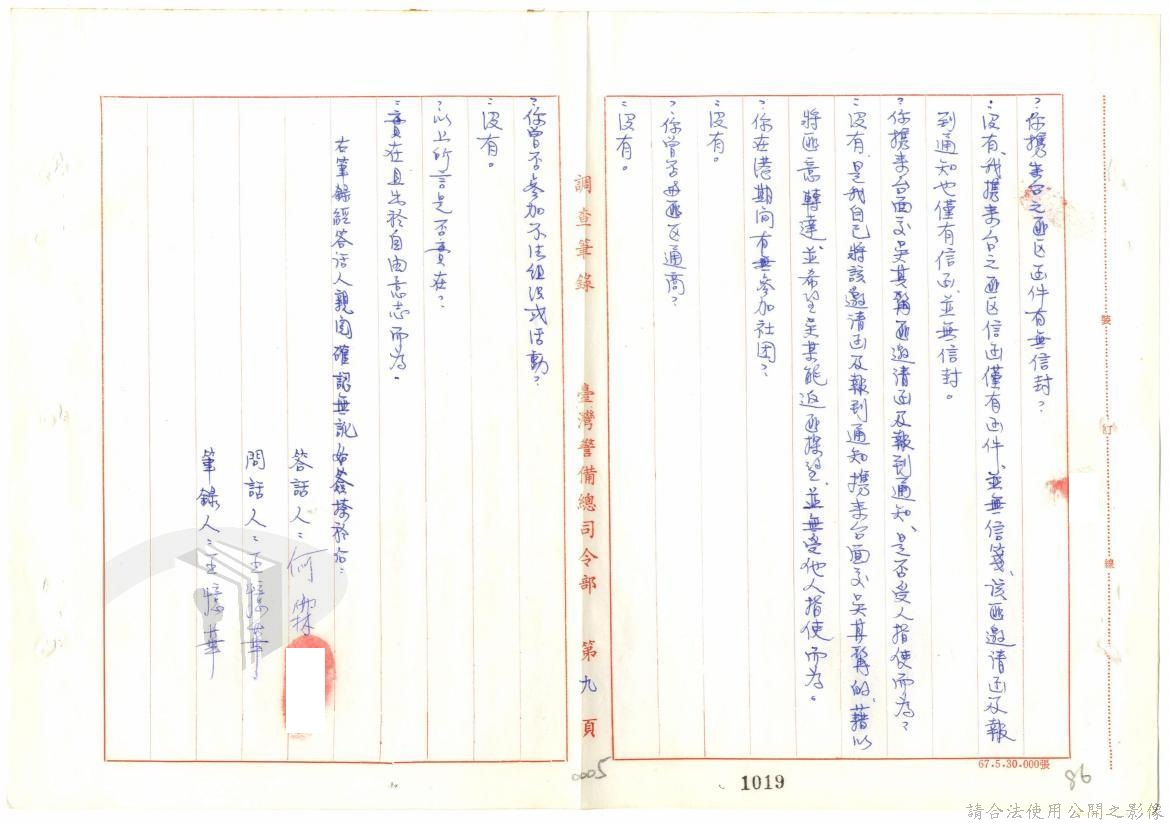 ?你攜來台之匪区函件有無信封?
:没有、我攜來台之匪区信函僅有函件、並無信箋、該匪邀請函及報
到通知也僅有信函、並無信封。
?你攜來台面交吳其 匪邀請函及報到通知、是否受人指使而為?
:没有、是我自己將該邀請函及報到通知攜來台面交吳其 的、藉以
將匪意轉達、並希望吳某能返匪探望、並無受他人指使而為。
?你在港期间有無参加社团?
:没有。
?你曾否 匪区通商?
:没有。
調查筆錄 臺灣警備總司令部 第九頁
?你曾否参加不法組织或活動?
:没有。
?以上所言是否實在?
:實在且出於自由意志而為。
右筆錄經答话人親閱確認無訛 簽 於后:
答話人:何霖
問話人:王 華
筆錄人:王 華
裝 訂 線
67.5.30.000張
0005
1019
86
請合法使用公開之影像